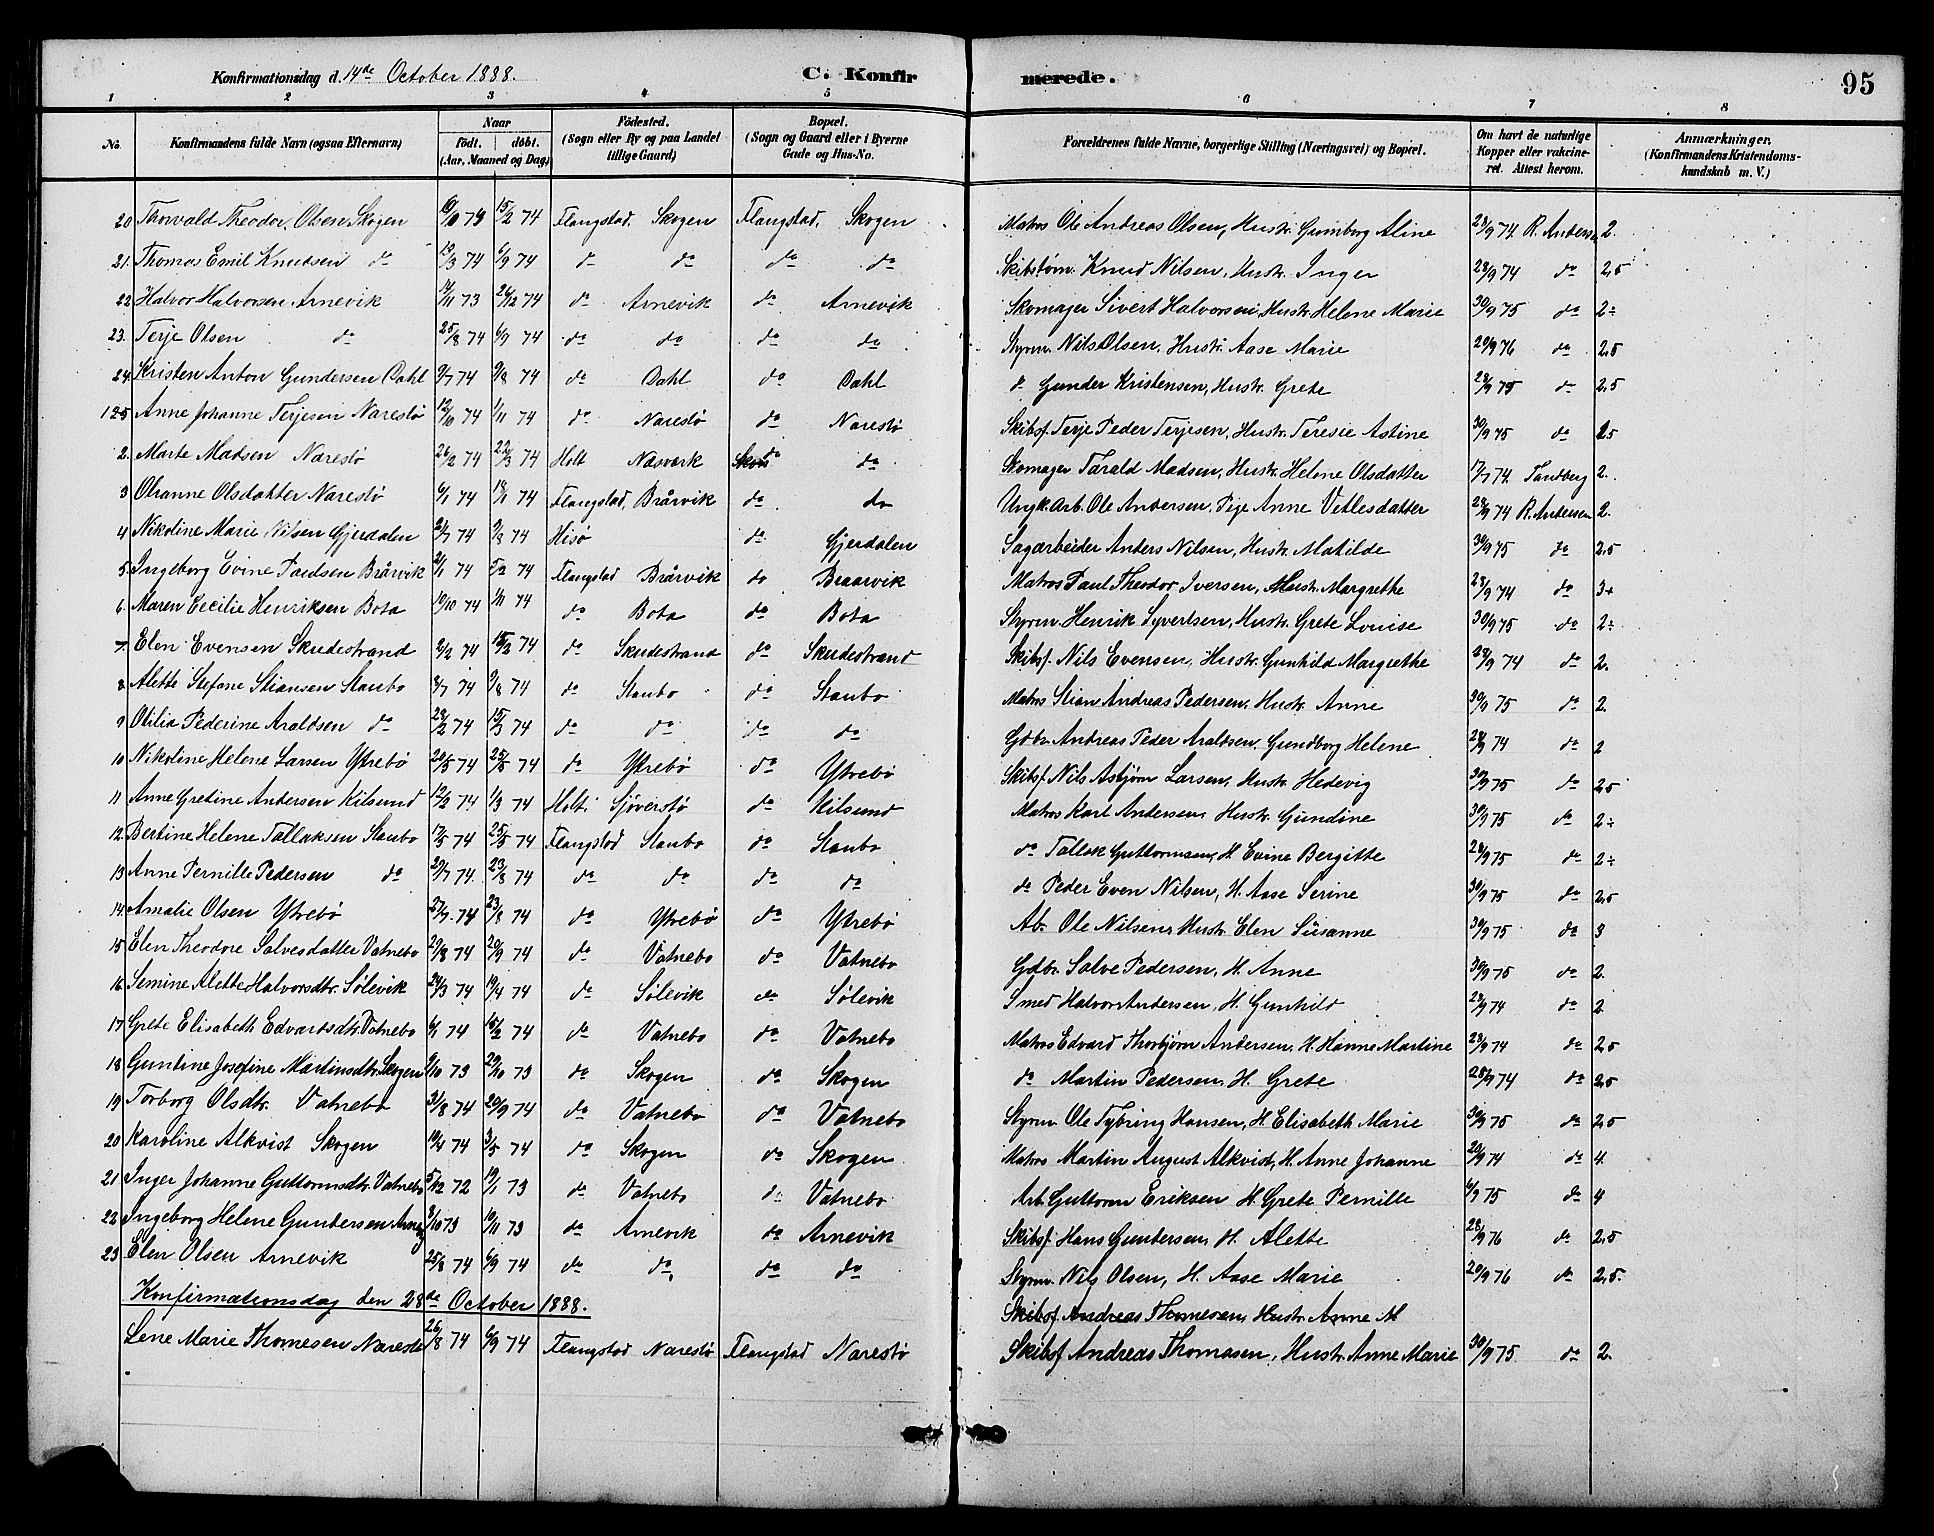 Konfirmationsdag d. 14de October 1888. C. Konfirmerede. 95
1 2 3 4 5 6 7 8
No. Konfirmandens fulde Navn (ogsaa Efternavn) Naar født. døbt. (Aar, Maaned og Dag) Fødested. (Sogn eller By og paa Landet tillige Gaard) Bopæl. (Sogn og Gaard eller i Byerne Gade og Hus-No. Forældrenes fulde Navne, borgerlige Stilling (Næringsvei) og Bopæl. Om havt de naturlige Kopper eller vakcineret. Attest herom. Anmærkninger. (Konfirmandens Kristendomskundskab m. V.)
20 Thorvald Theodor Olsen Skogen 15/2 74 Flangstad, Skogen Flangstad, Skogen Matros Ole Andreas Olsen, Hustr. Gumborg Aline 28/9 74 R. Andersen 2.
21. Thomas Emil Knudsen do 13/3 74 6/9 74 do do do do Skibstøm. Knud Nilsen, Hustr. Inger 28/9 74 do 2,5
22 Halvor Halvorsen Arnevik 14/11 73 26/12 74 do Arnevik do Arnevik Skomager Sivert Halvorsen, Hustr. Helene Marie 30/9 75 do 2÷
23. Terje Olsen do 25/8 74 6/9 74 do do do do Styrm. Nils Olsen, Hustr. Aase Marie 20/9 76 do 2,5
24 Kristen Anton Gundersen Dahl 2/7 74 9/8 74 do Dahl do Dahl do Gunder Kristensen, Hustr. Grete 28/9 75 do 2,5
1 25 Anne Johanne Terjesen Narestø 12/10 74 1/11 74 do Narestø do Narestø Skibsf. Terje Peder Terjesen, Hustr. Teresie Astine 30/9 75 do 2,5
2. Marte Madsen Narestø 26/2 74 22/3 74 Holt Næsverk do do Skomager Tarald Madsen, Hustr. Helene Olsdatter 17/7 74. Tandberg 2.
3 Ohanne Olsdatter Narestø 6/1 74 18/1 74 Flangstad, Brårvik do do Ungk. Arb. Ole Andersen, Pige Anne Vetlesdatter 28/9 74 R. Andersen 2.
4 Nikoline Marie Nilsen Gjerdalen 21/7 74 9/8 74 Hisø do Gjerdalen Sagarbeider Anders Nilsen, Hustr. Matilde 30/9 75 do 2,5
5. Ingeborg Evine Paulsen Brårvik 2/1 74 74 Flangstad Brårvik do Braarvik Matros Paul Theodor Iversen, Hustr. Margrethe 28/9 74 do 3+
6. Maren Cecilie Henriksen Bota 10/10 74 1/11 74 do Bota do Bota Styrm. Henrik Syvertsen, Hustr. Grete Louise 30/9 75 do 2÷
7. Elen Evensen Skudestrand 2/2 74 15/2 74 do Skudestrand do Skudestrand Skibsf. Nils Evensen, Hustr. Gunhild Margrethe 28/9 74 do 2.
8 Alette Stefane Stiansen Staubo 8/7 74 9/8 74 do Staubo do Staubo Matros Stian Andreas Pedersen, Hustr. Anne 30/9 75 do 2.
9 Otilia Pederine Araldsen do 23/2 74 15/3 74 do do do do Gdbr. Andreas Peder Araldsen, Gundborg Helene 28/9 74 do 2
10 Nikoline Helene Larsen Ytrebø 20/5 74 25/5 74 do Ytrebø do Ytrebø Skibsf. Nils Asbjørn Larsen, Hustr. Hedevig 30/9 75 do 2,5
11 Anne Gretine Andersen Kilsund 12/2 74 1/3 74 Holt: Sjøverstø do Kilsund Matros Karl Andersen, Hustr. Gundine 30/9 75 do 2÷
12. Bertine Helene Tallaksen Staubo 17/5 74 25/5 74 Flangstad Staubo do Staubo do Tallak Guttormsen, H. Evine Bergitte 28/9 75 do 2÷
13 Anne Pernille Pedersen do 29/7 74. 23/8 74 do do do do do Peder Even Nilsen, H. Aase Serine 30/9 75 do 2,5
14. Amalie Olsen Ytrebø 27/7 74 23/8 74 do Ytrebø do Ytrebø Ab. Ole Nilsen, Hustr. Elen Susanne 30/9 75 do 3
15 Elen Theodore Salvesdatter Vatnebo 29/8 74 20/9 74 do Vatnebo do Vatnebo Gdbr. Salve Pedersen, H. Anne 30/9 75 do 2.
16 Semine Alette Halvorsdtr. Sølevik 24/3 74 19/4 74 do Sølevik do Sølevik Smed Halvor Andersen, H. Gunhild 28/9 74 do 2.
17 Grete Elisabeth Edvardsdtr. Vatnebo 6/1 74 15/2 74 do Vatnebo do Vatnebo Matros Edvard Thorbjørn Andersen, H. Hanne Martine 28/9 74 do 2,5
18 Guntine Josefine Martinsdtr. Skogen 9/10 73 29/10 73 do Skogen do Skogen do Martin Pedersen, H. Grete 28/9 74 do 2,5
19 Torborg Olsdtr. Vatnebo 31/8 74 20/9 74 do Vatnebo do Vatnebo Styrm Ole Tybring Hansen, H. Elisabeth Marie 30/9 75 do 2,5
20 Karoline Alkvist Skogen 19/4 74 3/5 74 do Skogen do Skogen Matros Martin August Alkvist, H. Anne Johanne 20/9 74 do 4.
21 Inger Johanne Guttormsdtr. Vatnebo 5/12 72 19/1 73 do Vatnebo do Vatnebo Arb. Guttorm Eriksen H. Grete Pernille 6/9 75 do 4
22. Ingeborg Helene Gundersen 3/10 73 10/11 73 do Arnevik do Arnevik Skibsf. Hans Gundersen, H. Alette 28/9 76 do 2,5
23 Elen Olsen Arnevik 25/8 74 6/9 74 do do do do Styrm. Nils Olsen, H. Aase Marie 20/9 76 do 2,5.
Konfirmationsdag den 28de October 1888. Skibsf. Andreas Thomesen, Hustr. Anne M
Lene Marie Thomesen Narestø 26/8 74 6/9 74 Flangstad Narestø Flangstad Narestø Skibsf Andreas Thomasen, Hustr. Anne Marie 30/9 75 do 2.